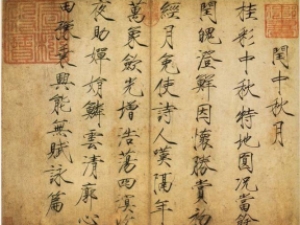 閏中秋月
桂彩中秋特地圓況當餘
閏魄澄鮮因懷勝賞初
經月免使詩人嘆隔年
萬象歛光增浩蕩四溟
夜助嬋娟鱗雲清廓心
田豫乘興能無賦詠篇